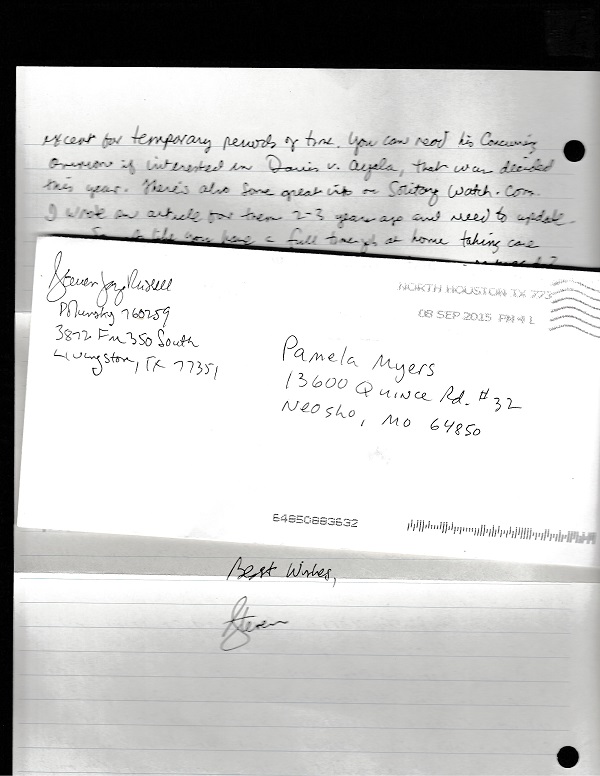 except for temporary periods of time. You can read his Concurring
Opinion if interested in Davis v. Ayala, that was decided
this year. There's also some great info on Solitary Watch.Com.
I wrote an article for them 2-3 years ago and need to update
you have a full time job at home taking care
Steven Jay Russell
Polunsky 760259
3872 FM 350 South
Livingston, TX 77351
NORTH HOUSTON TX 773
08 SEP 2015 PM 4 L
Pamela Myers
13600 Quince Rd. #32
Neosho, MO 64850
64850883632
Best Wishes,
Steven